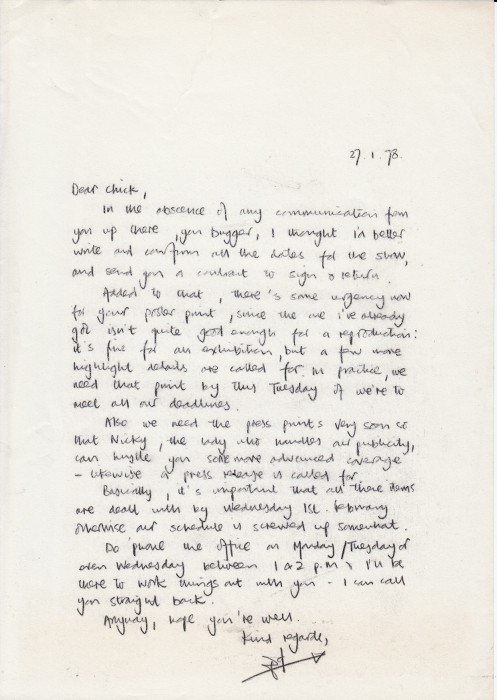 27.1.78.
Dear Chick,
In the abscence of any communication from
you up there, you bugger, I thought I'd better
write and confirm all the dates for the show,
and send you a contract to sign & return.
Added to that, there's some urgency now
for your poster print, since the one i've already
got isn't quite good enough for a reproduction:
it's fine for an exhibition, but a few more
highlight details are called for. In practice, we
need that print by this Tuesday if we're to
meet all our deadlines.
Also we need the press prints very soon so
that Nicky, the lady who handles our publicity,
can hustle you some more advanced coverage
- likewise a press release is called for.
Basically, it's important that all these items
are dealt with by Wednesday 1st. February
otherwise our schedule is screwed up somewhat.
Do 'phone the office on Monday/Tuesday or
even Wednesday between 1 & 2 p.m. I'll be
there to work things out with you - I can call
you straight back.
Anyway, hope you're well.
Kind regards,